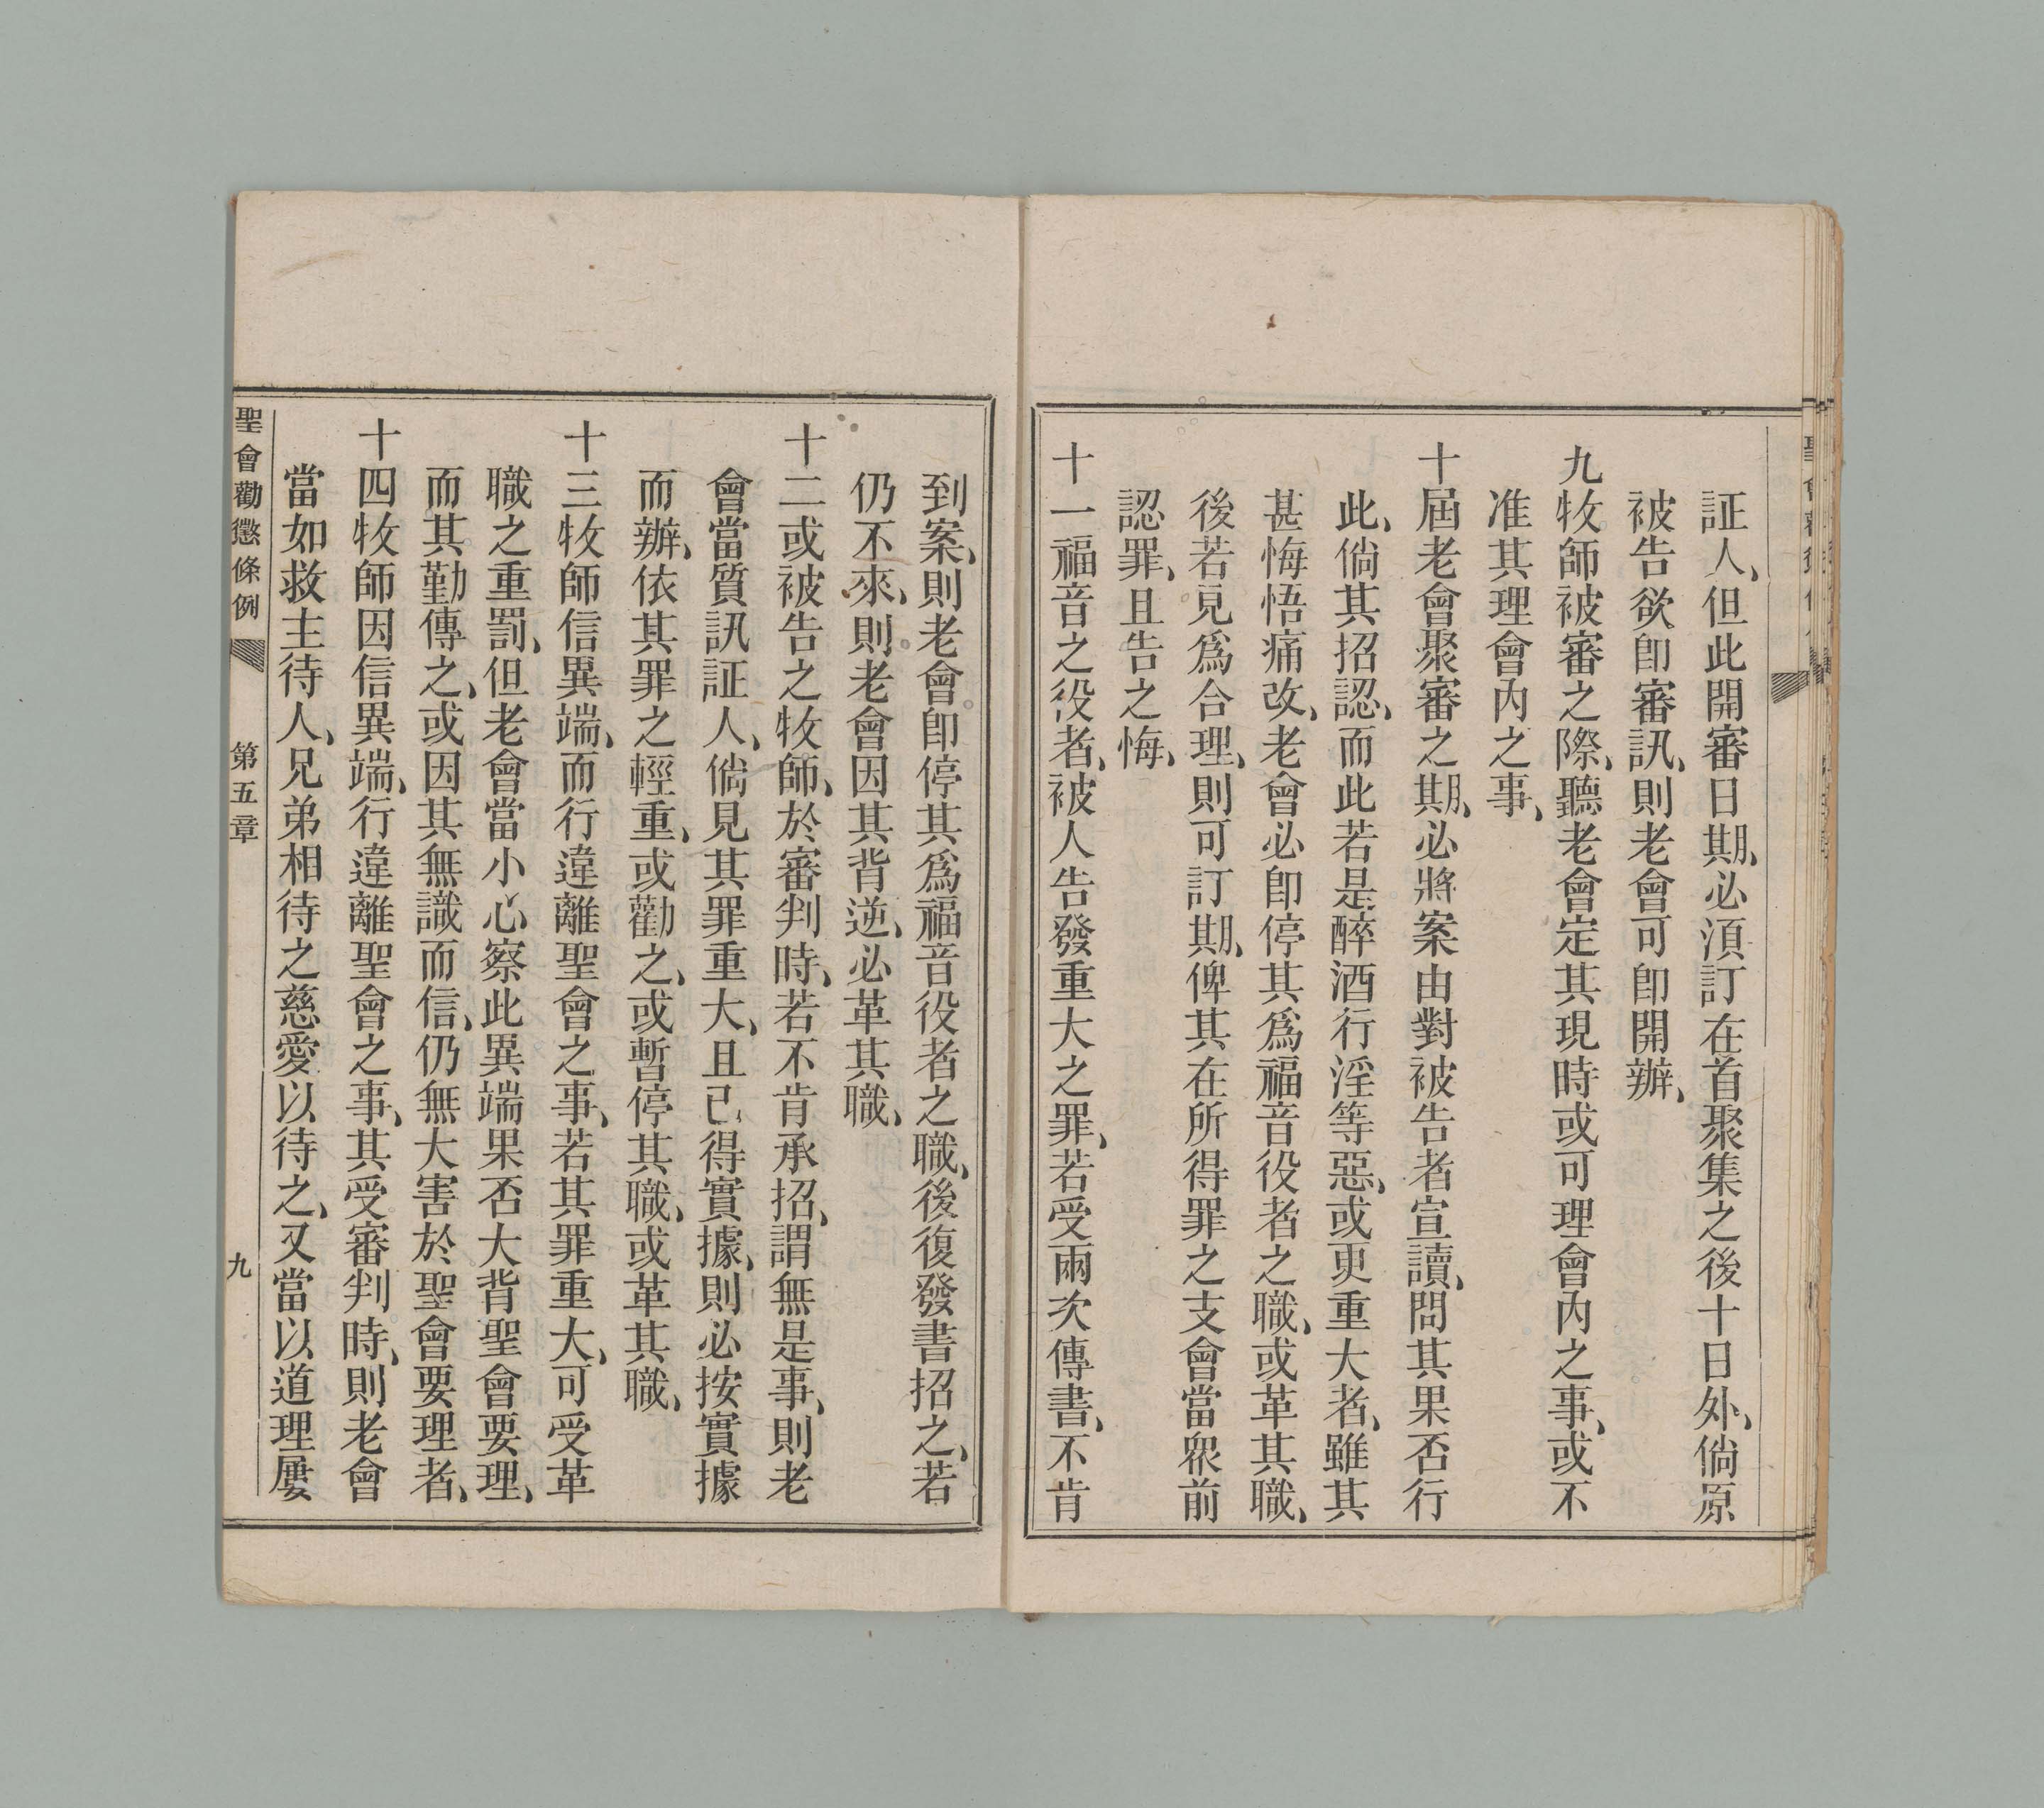 証人、但此開審日期、必須訂在首聚集之後十日外、倘原
被告欲即審訊、則老會可即開辦、
九牧師被審之際、聽老會定其現時或可理會內之事、或不
准其理會內之事、
十屆老會聚審之期、必將案由對被告者宣讀、問其果否行
此、倘其招認、而此若是醉酒行淫等惡、或更重大者、雖其
甚悔悟痛改、老會必即停其爲福音役者之職、或革其職、
後若見爲合理、則可訂期、俾其在所得罪之支會當衆前
認罪、且告之悔、
十一福音之役者、被人告發重大之罪、若受兩次傳書、不肯
到案、則老會即停其爲福音役者之職、後復發書招之、若
仍不來、則老會因其背逆、必革其職、
十二或被告之牧師、於審判時、若不肯承招、謂無是事、則老
會當質訊証人、倘見其罪重大、且已得實據、則必按實據
而辦、依其罪之輕重、或勸之、或暫停其職、或革其職、
十三牧師信異端、而行違離聖會之事、若其罪重大、可受革
職之重罰、但老會當小心察此異端果否大背聖會要理、
而其勤傳之、或因其無識而信、仍無大害於聖會要理者、
十四牧師因信異端、行違離聖會之事、其受審判時、則老會
當如救主待人、兄弟相待之慈愛以待之、又當以道理屢
聖會勸懲條例 第五章 九